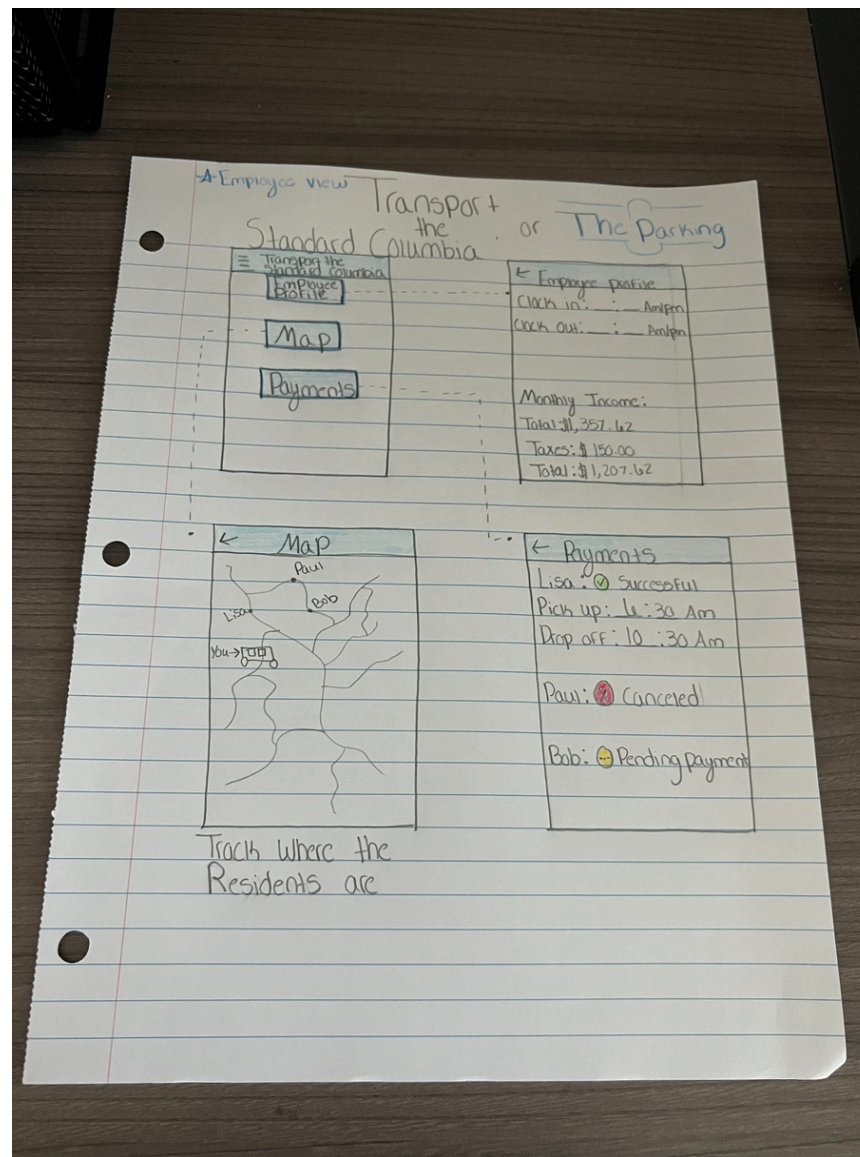 Employee view
Transport
the
Standard Columbia
or The Parking
Transport the
Standard Columbia
Employee
Profile
Map
Payments
← Employee profile
Clock in: __:__ Am/pm
Clock out: __:__ Am/pm
Monthly Income:
Total: $1,357.62
Taxes: $150.00
Total: $1,207.62
← Map
Paul
Bob
Lisa
You→
Track where the
Residents are
← Payments
Lisa: Successful
Pick up: 6:30 Am
Drop off: 10:30 Am
Paul: Canceled
Bob: Pending payment